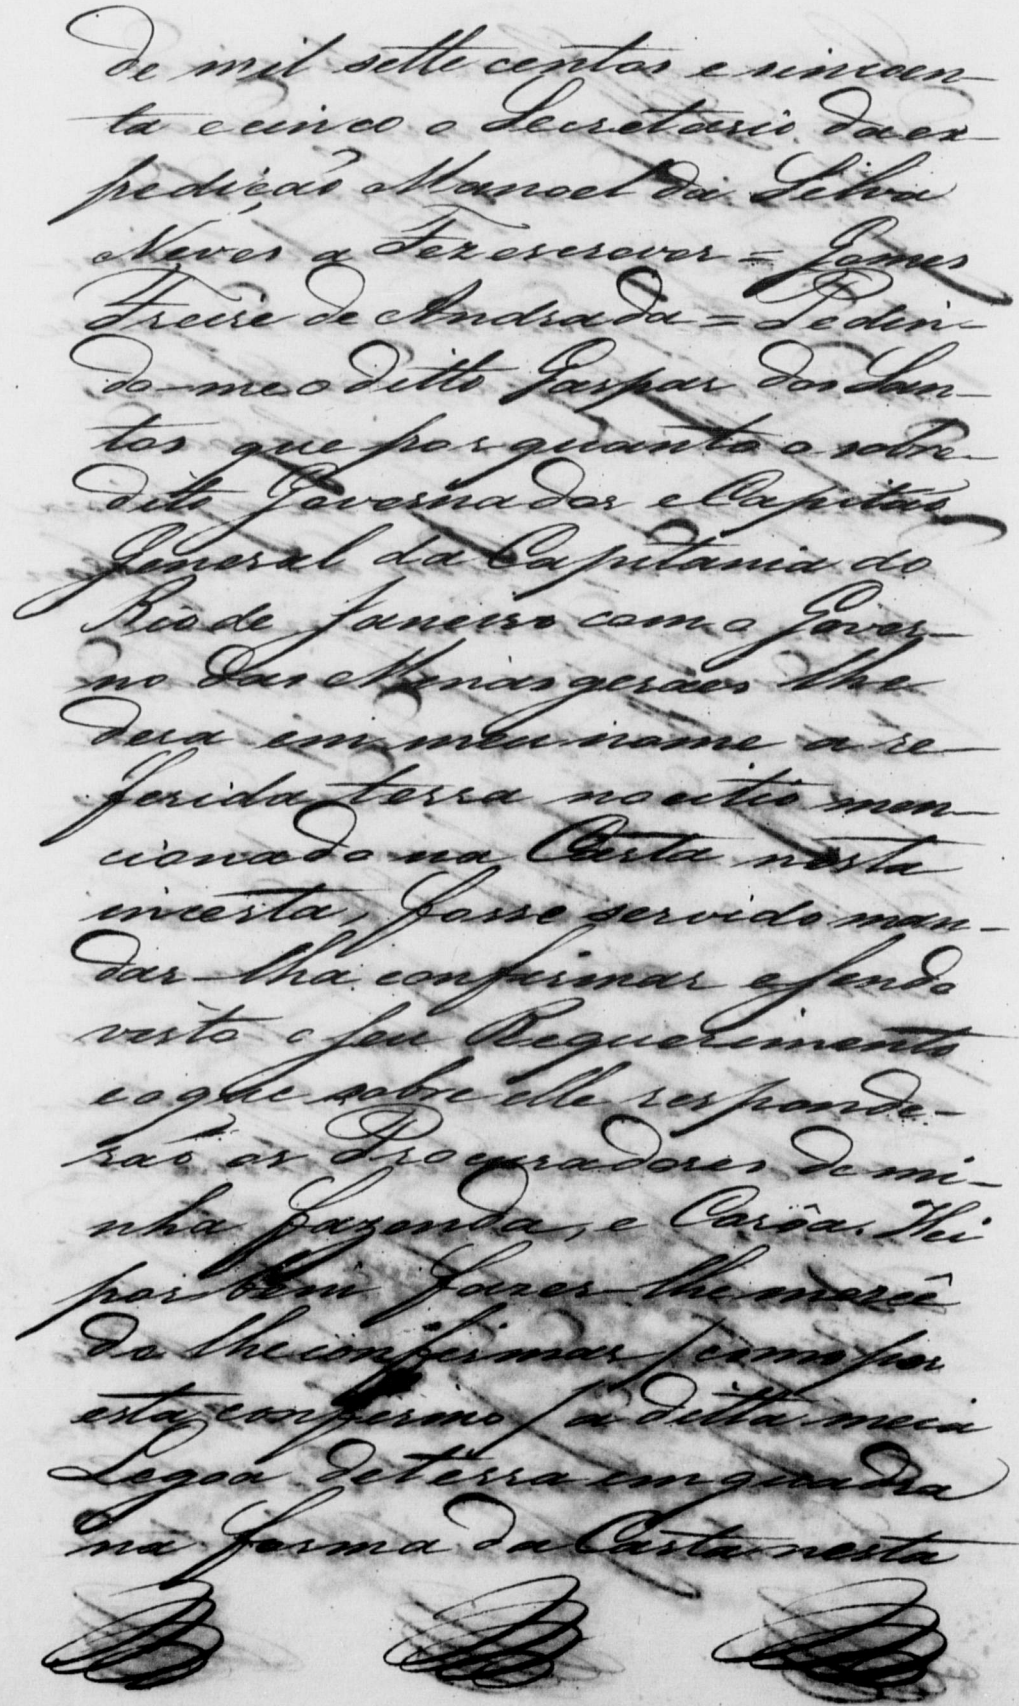 de mil sette centos e sincoen-
ta e cinco o Secretario da ex-
pedição Manoel da Silva
Neves a Fez escrever = Gomes
Freire de Andrada = Pedin-
do-me o ditto Gaspar dos San-
tos que por quanto o sobre-
dito Governador e Capitão
General da Capitania do
Rio de Janeiro com o Gover-
no das Minas geraes lhe
dera em meu nome a re-
ferida terra no citio men-
cionado na Carta nesta
incerta, fosse servido man-
dar-lha confirmar e sendo
visto o seu Requerimento
e o que sobre elle responde-
rão os Procuradores de mi-
nha fazenda, e Corôa. Hei
por bem fazer-lhe mercê
de lhe confirmar / como por
esta confirmo / a ditta meia
Legoa de terra em quadra
na forma da Carta nesta